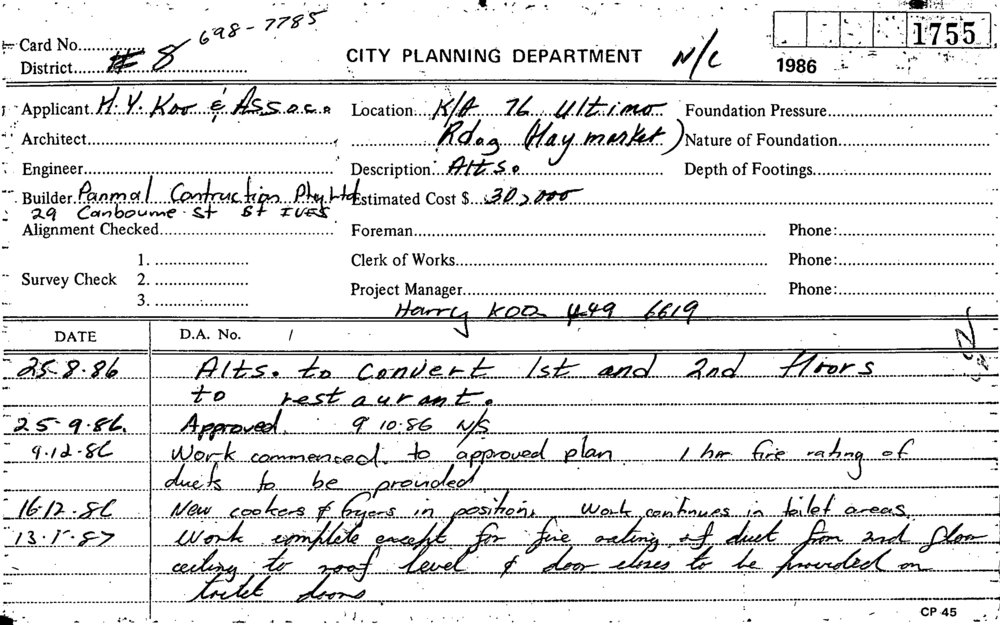 698-7785
Card No.
District # 8
CITY PLANNING DEPARTMENT N/C
1755
1986
Applicant H. Y. Koo & Assoc.
Location K/A 76 Ultimo
Foundation Pressure
Architect
Rdag (Haymarket)
Nature of Foundation
Engineer
Description Alts.
Depth of Footings
Builder Panmal Contruction Pty Ltd
Estimated Cost $ 30,000
29 Canbourne St St IVES
Alignment Checked
Foreman
Phone:
Survey Check 1.
2.
3.
Clerk of Works
Phone:
Project Manager
Phone:
Harry KOO 449 6619
DATE D.A. No.
25-8-86 Alts. to convert 1st and 2nd floors
to restaurant.
25-9-86. Approved. 9 10-86 N/S
9-12-86 Work commenced to approved plan 1 hr fire rating of
ducts to be provided
16-12-86 New cookers & fryers in position. Work continues in toilet areas.
13-1-87 Work complete except for fire rating of duct from 2nd floor
ceiling to roof level & door closes to be provided on
toilet doors
CP 45